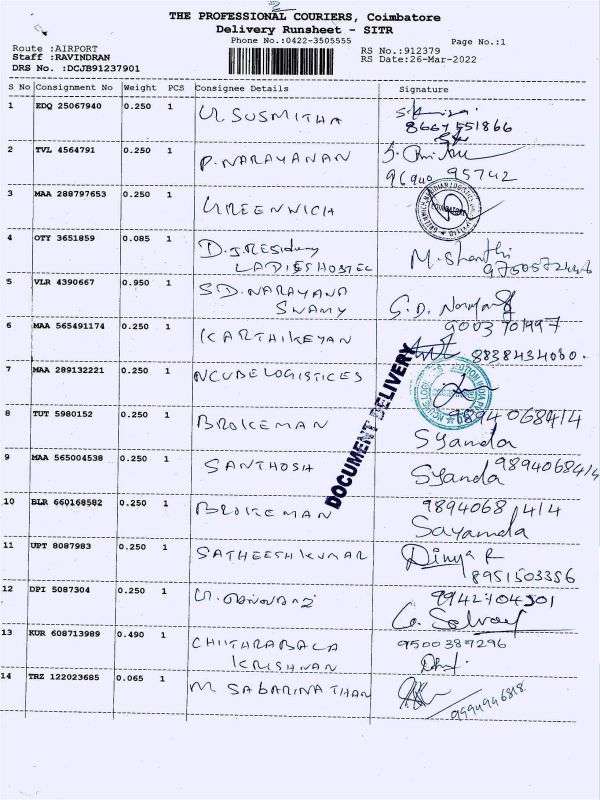 2
THE PROFESSIONAL COURIERS, Coimbatore
Delivery Runsheet - SITR
Phone No.:0422-3505555
Page No.:1
Route :AIRPORT
Staff :RAVINDRAN
DRS No. :DCJB91237901
RS No.:912379
RS Date:26-Mar-2022
S No Consignment No Weight PCS Consignee Details Signature
1 EDQ 25067940 0.250 1 U. SUSMITHA
8667551866
2 TVL 4564791 0.250 1 P. NARAYANAN
96940 95742
3 MAA 288797653 0.250 1 GREENWICH
4 OTY 3651859 0.085 1 D. J. Residency
LADIES HOSTEL M. Shanthi
5 VLR 4390667 0.950 1 S.D. NARAYANA
SWAMY S. D.
9003701997
6 MAA 565491174 0.250 1 KARTHIKEYAN
8838434080.
7 MAA 289132221 0.250 1 NCUBE LOGISTICES
DOCUMENT DELIVERY
8 TUT 5980152 0.250 1 BROKEMAN 9894068414
Syanda
9 MAA 565004538 0.250 1 SANTHOSH Syanda 9894068414
10 BLR 660168582 0.250 1 BROKEMAN 9894068414
Sayamda
11 UPT 8087983 0.250 1 SATHEESH KUMAR Dinya R
8951503356
12 DPI 5087304 0.250 1
9942104301
13 KUR 608713989 0.490 1 CHITHRABALA
KRISHNAN 9500387296
14 TRZ 122023685 0.065 1 M SABARINATHAN
9994946818.